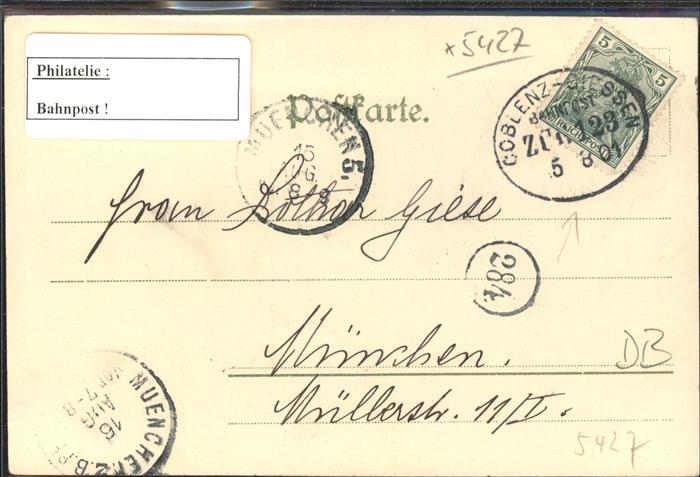 +5427
Philatelie :
Bahnpost !
Postkarte.
5
5
COBLENZ-GIESSEN
BAHNPOST
ZUG 123
5 8
MUENCHEN 5.
15
AUG.
8 9
Frau Lothar Giese
284.
München.
DB
Müllerstr. 11/I.
5427
MUENCHEN 2.B.P.
16
AUG
VOR 7-8